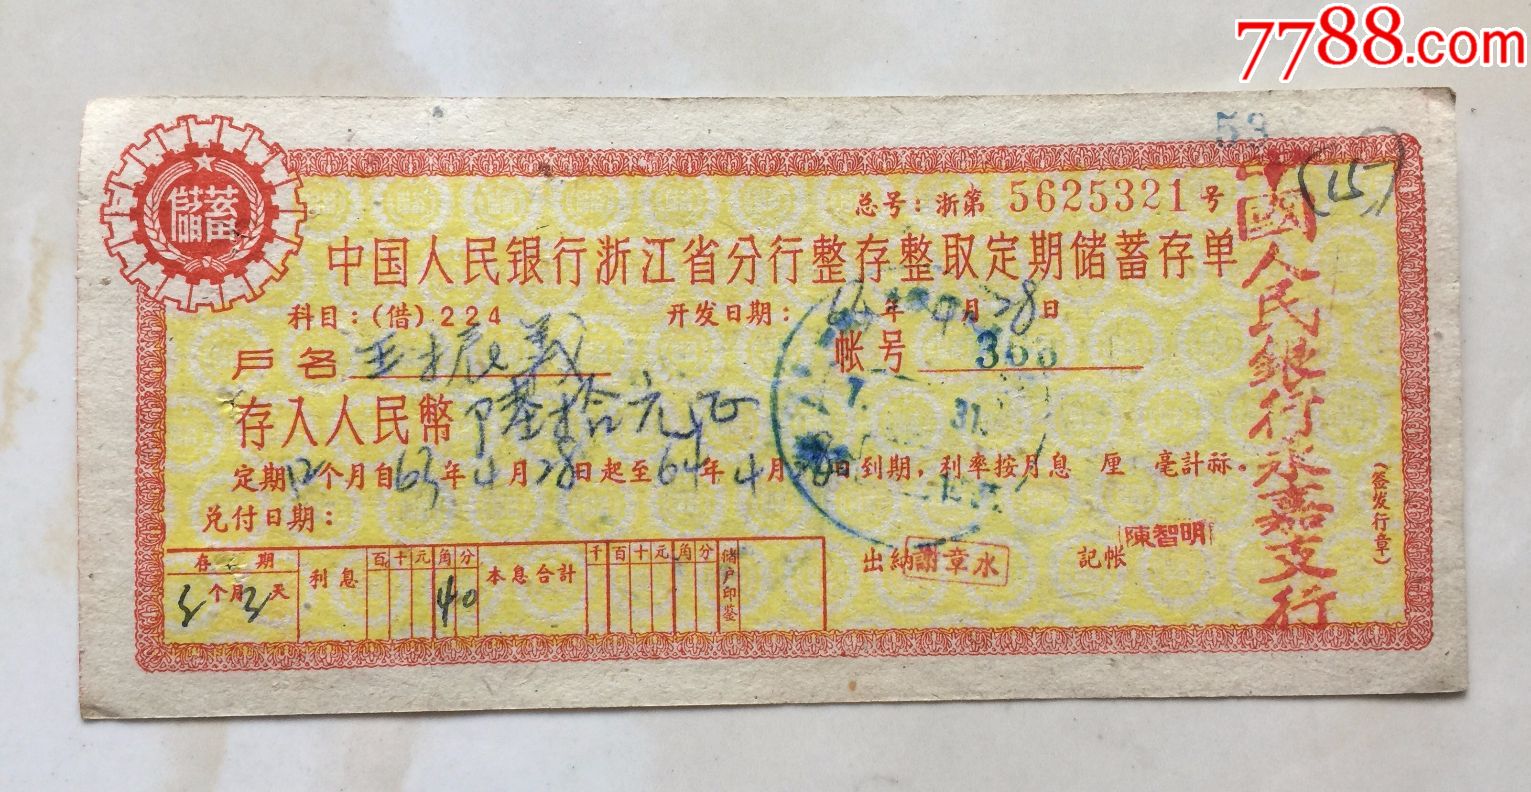 7788.com
53
(15)
储蓄
总号：浙第 5625321 号
中国人民银行浙江省分行整存整取定期储蓄存单
科目：(借)224 开发日期： 年 4月28日
戶名 王振義 帐号 363
存入人民幣 陸拾元正
定期12个月自63年4月28日起至64年4月28日到期，利率按月息 厘 毫計祘。
兑付日期：
存 期 利息 百十元角分 本息合計 千百十元角分 储户印鉴
3个月3天 40
出納 謝章水 記帐 陳智明
中國人民銀行永嘉支行
(签发行章)